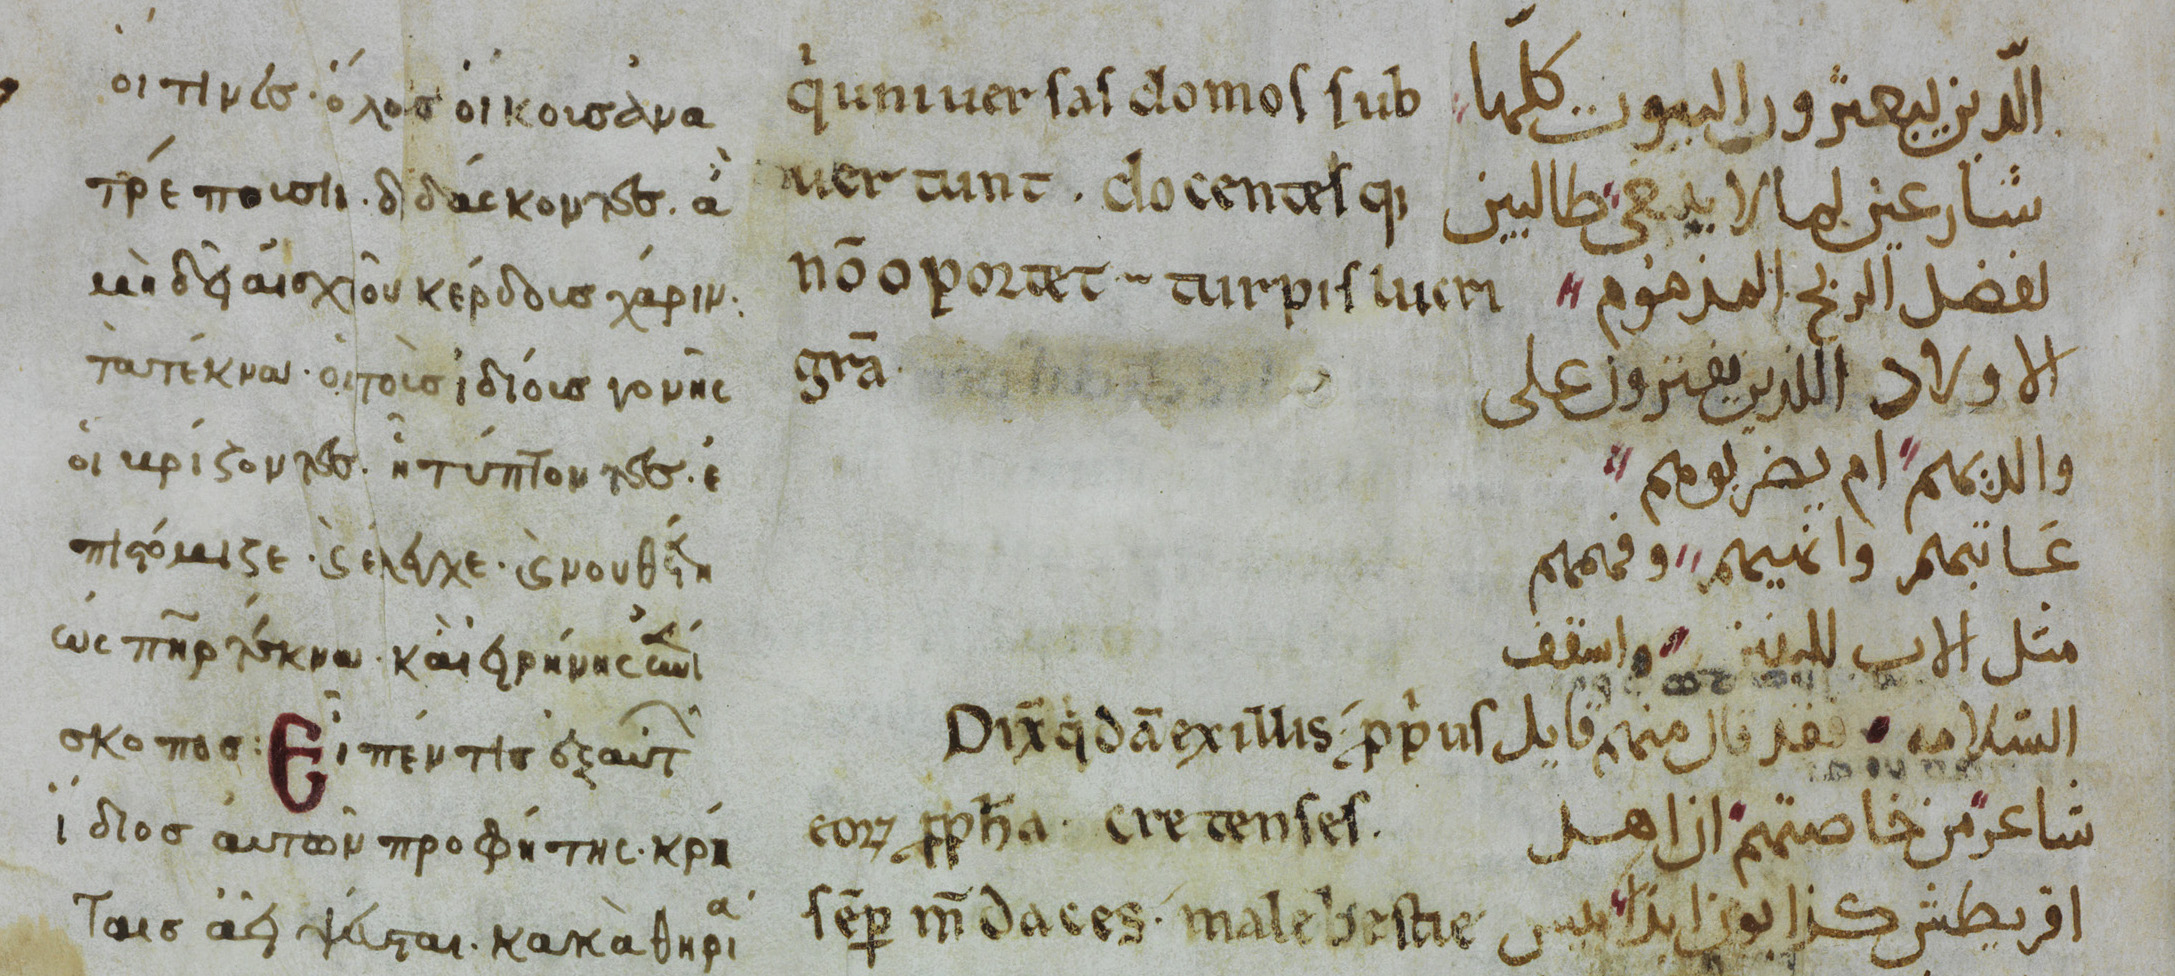 οι τινεσ · όλουσ οίκουσ ανα
τρέπουσιν · διδάσκοντεσ · ἃ
μὴ δεῖ αισχροῦ κέρδουσ χάριν:
τα τέκνα · οι τοισ ιδίουσ γονεῖς
πιστόμιζε · ϗ έλεγχε · ϗ νουθέτει
ώς πηρ τέκνα · και ειρήνης επί
σκοποσ: Εῖπέν τισ εξ αυτ
ίδιοσ αυτῶν προφήτης · κρη
ται αεὶ ψεύσται · κακὰ θηρία
q̇ uniuersas domos sub
uertunt . docentes q;
nō oportet turpis lucri
grā.
Dix̄ q̇dā ex illis · ꝓprius
eoꝝ ꝓph̄a · cretenses .
sēꝑ m̄daces · male bestie
الّذين يبعثرون البيوت كلّها
شارعين لما لا ينبغى طالبين
لفضل الربح المذموم
الاولاد اللذين يفترون على
والديهم ام يضربوهم
عاتبهم وانهيهم وفهمهم
مثل الاب للبنين واسقف
السّلامه فقد قال منهم قايل
شاعر من خاصتهم ان اهل
اقريطش كذابون ابدا بيس